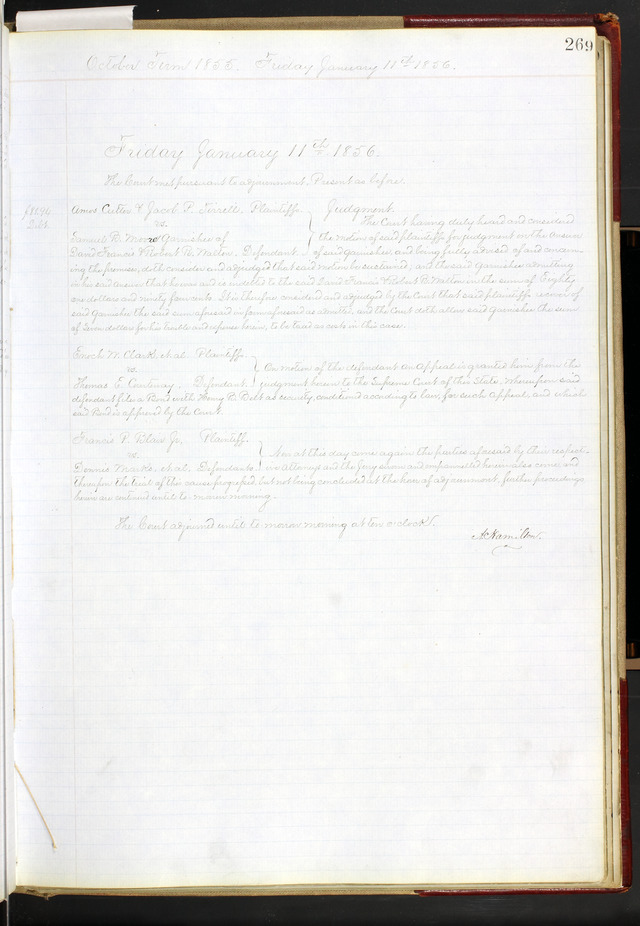 269
October Term 1855. Friday January 11th 1856.
Friday January 11th 1856.
The Court met pursuant to adjournment. Present as before.
Amos Cutter & Jacob P. Tirrell, Plaintiffs } Judgment.
vs. The Court having duly heard and considered
Samuel B. Moore Garnishee of the motion of said plaintiffs for judgment on the answer
David Francis & Robert B. Walton. Defendant. of said garnishee, and being fully advised of and concern-
ing the premises, doth consider and adjudged that said motion be sustained, and the said garnishee admitting
in his said answer that he was and is indebted to the said David Francis & Robert B. Walton in the sum of Eighty
one dollars and ninety four cents. It is therefore considered and adjudged by the Court that said plaintiffs recover of
said Garnishee the said sum aforesaid in form aforesaid as admitted, and the Court doth allow said Garnishee the sum
of dollars for his trouble and expense herein, to be taxed as costs in this case.
Enoch W. Clark, et al. Plaintiffs }
vs. On motion of the defendant an appeal is granted him from the
Thomas E. Courtenay, Defendant judgment herein to the Supreme Court of this State, Whereupon said
defendant files a Bond with Henry B. Belt as security, conditioned according to law for such appeal and which
said Bond is approved by the Court.
Francis P. Blair Jr. Plaintiff. }
vs. Now at this day come again the parties aforesaid by their respect-
Dennis Marks, et al. Defendants ive attorneys and the Jury sworn and empannelled herein also come, and
thereupon the trial of this cause progressed, but not being concluded at the hour of adjournment, further proceedings
herein are continued until to morrow morning.
The Court adjourned until to morrow morning at ten o'clock.
A Hamilton.